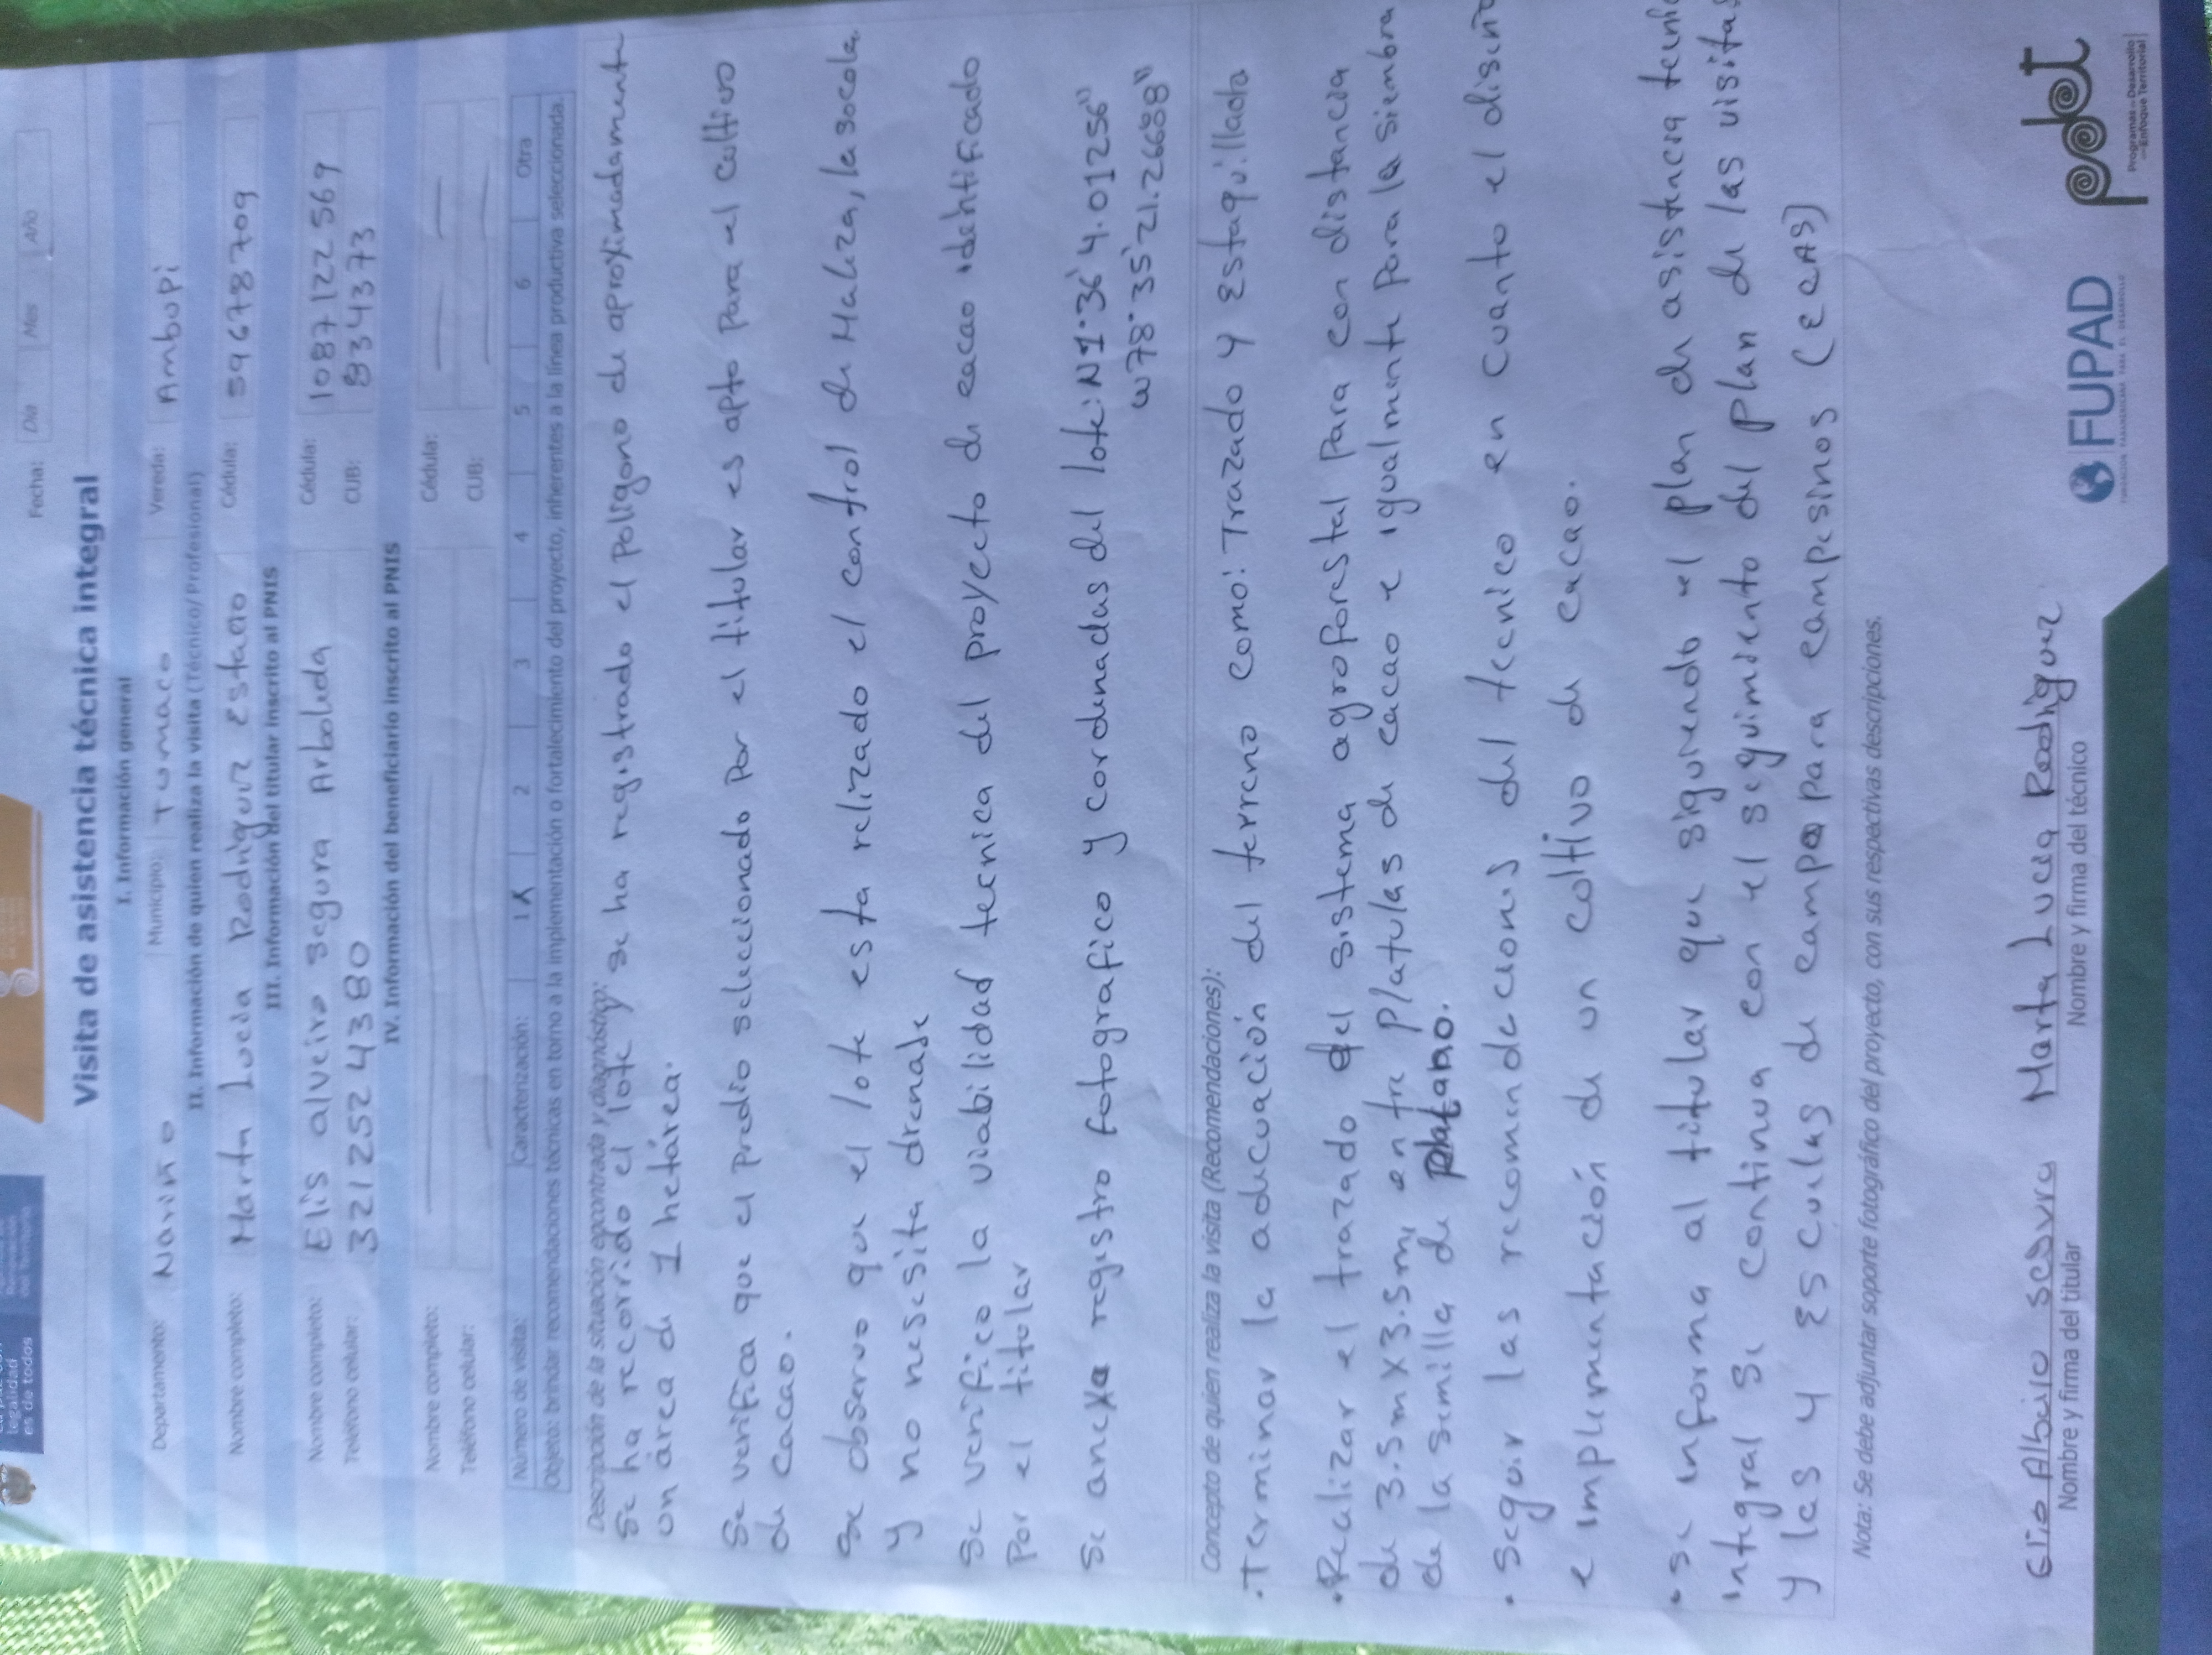 legalidad
es de todos
Fecha: Día Mes Año
Visita de asistencia técnica integral
I. Información general
Departamento: Nariño Municipio: Tumaco Vereda: Ambupi
II. Información de quien realiza la visita (Técnico/Profesional)
Nombre completo: Marta Lucia Rodriguez Estacio Cédula: 59678709
III. Información del titular inscrito al PNIS
Nombre completo: Elis alveiro segura Arboleda Cédula: 1087122569
Teléfono celular: 3212524380 CUB: 8334373
IV. Información del beneficiario inscrito al PNIS
Nombre completo: Cédula:
Teléfono celular: CUB:
Número de visita: Caracterización: 1 X 2 3 4 5 6 Otra
Objeto: brindar recomendaciones técnicas en torno a la implementación o fortalecimiento del proyecto, inherentes a la línea productiva seleccionada.
Descripción de la situación encontrada y diagnóstico:
Se ha recorrido el lote y se ha registrado el poligono de aproximadamente
un área de 1 hetárea.
Se verifica que el predio seleccionado por el titular es apto para el cultivo
de cacao.
Se observo que el lote esta relizado el control de Maliza, la socola,
y no nesesita drenase
Se verifico la viabilidad tecnica del proyecto de cacao identificado
por el titular
Se anexa registro fotografico y cordenadas del lote: N1°36'4.01256"
W78°35'21.26688"
Concepto de quien realiza la visita (Recomendaciones):
• Terminar la adecuación del terreno como: Trazado y Estaquillado
• Realizar el trazado del sistema agroforestal para con distancia
de 3.5m x 3.5m, entre platulas de cacao e igualmente para la siembra
de la semilla de platano.
• Seguir las recomendeciones del tecnico en cuanto el diseño
e implementación de un coltivo de cacao.
• se informa al titular que siguiendo el plan de asistencia tecni
integral se continua con el seguimiento del plan de las visitas
y las y Esculas de campo para campesinos (ECAS)
Nota: Se debe adjuntar soporte fotográfico del proyecto, con sus respectivas descripciones.
Elio Albairo segura Marta Lucia Rodriguez
Nombre y firma del titular Nombre y firma del técnico
FUPAD
FUNDACIÓN PANAMERICANA PARA EL DESARROLLO
pdet
Programas de Desarrollo
con Enfoque Territorial